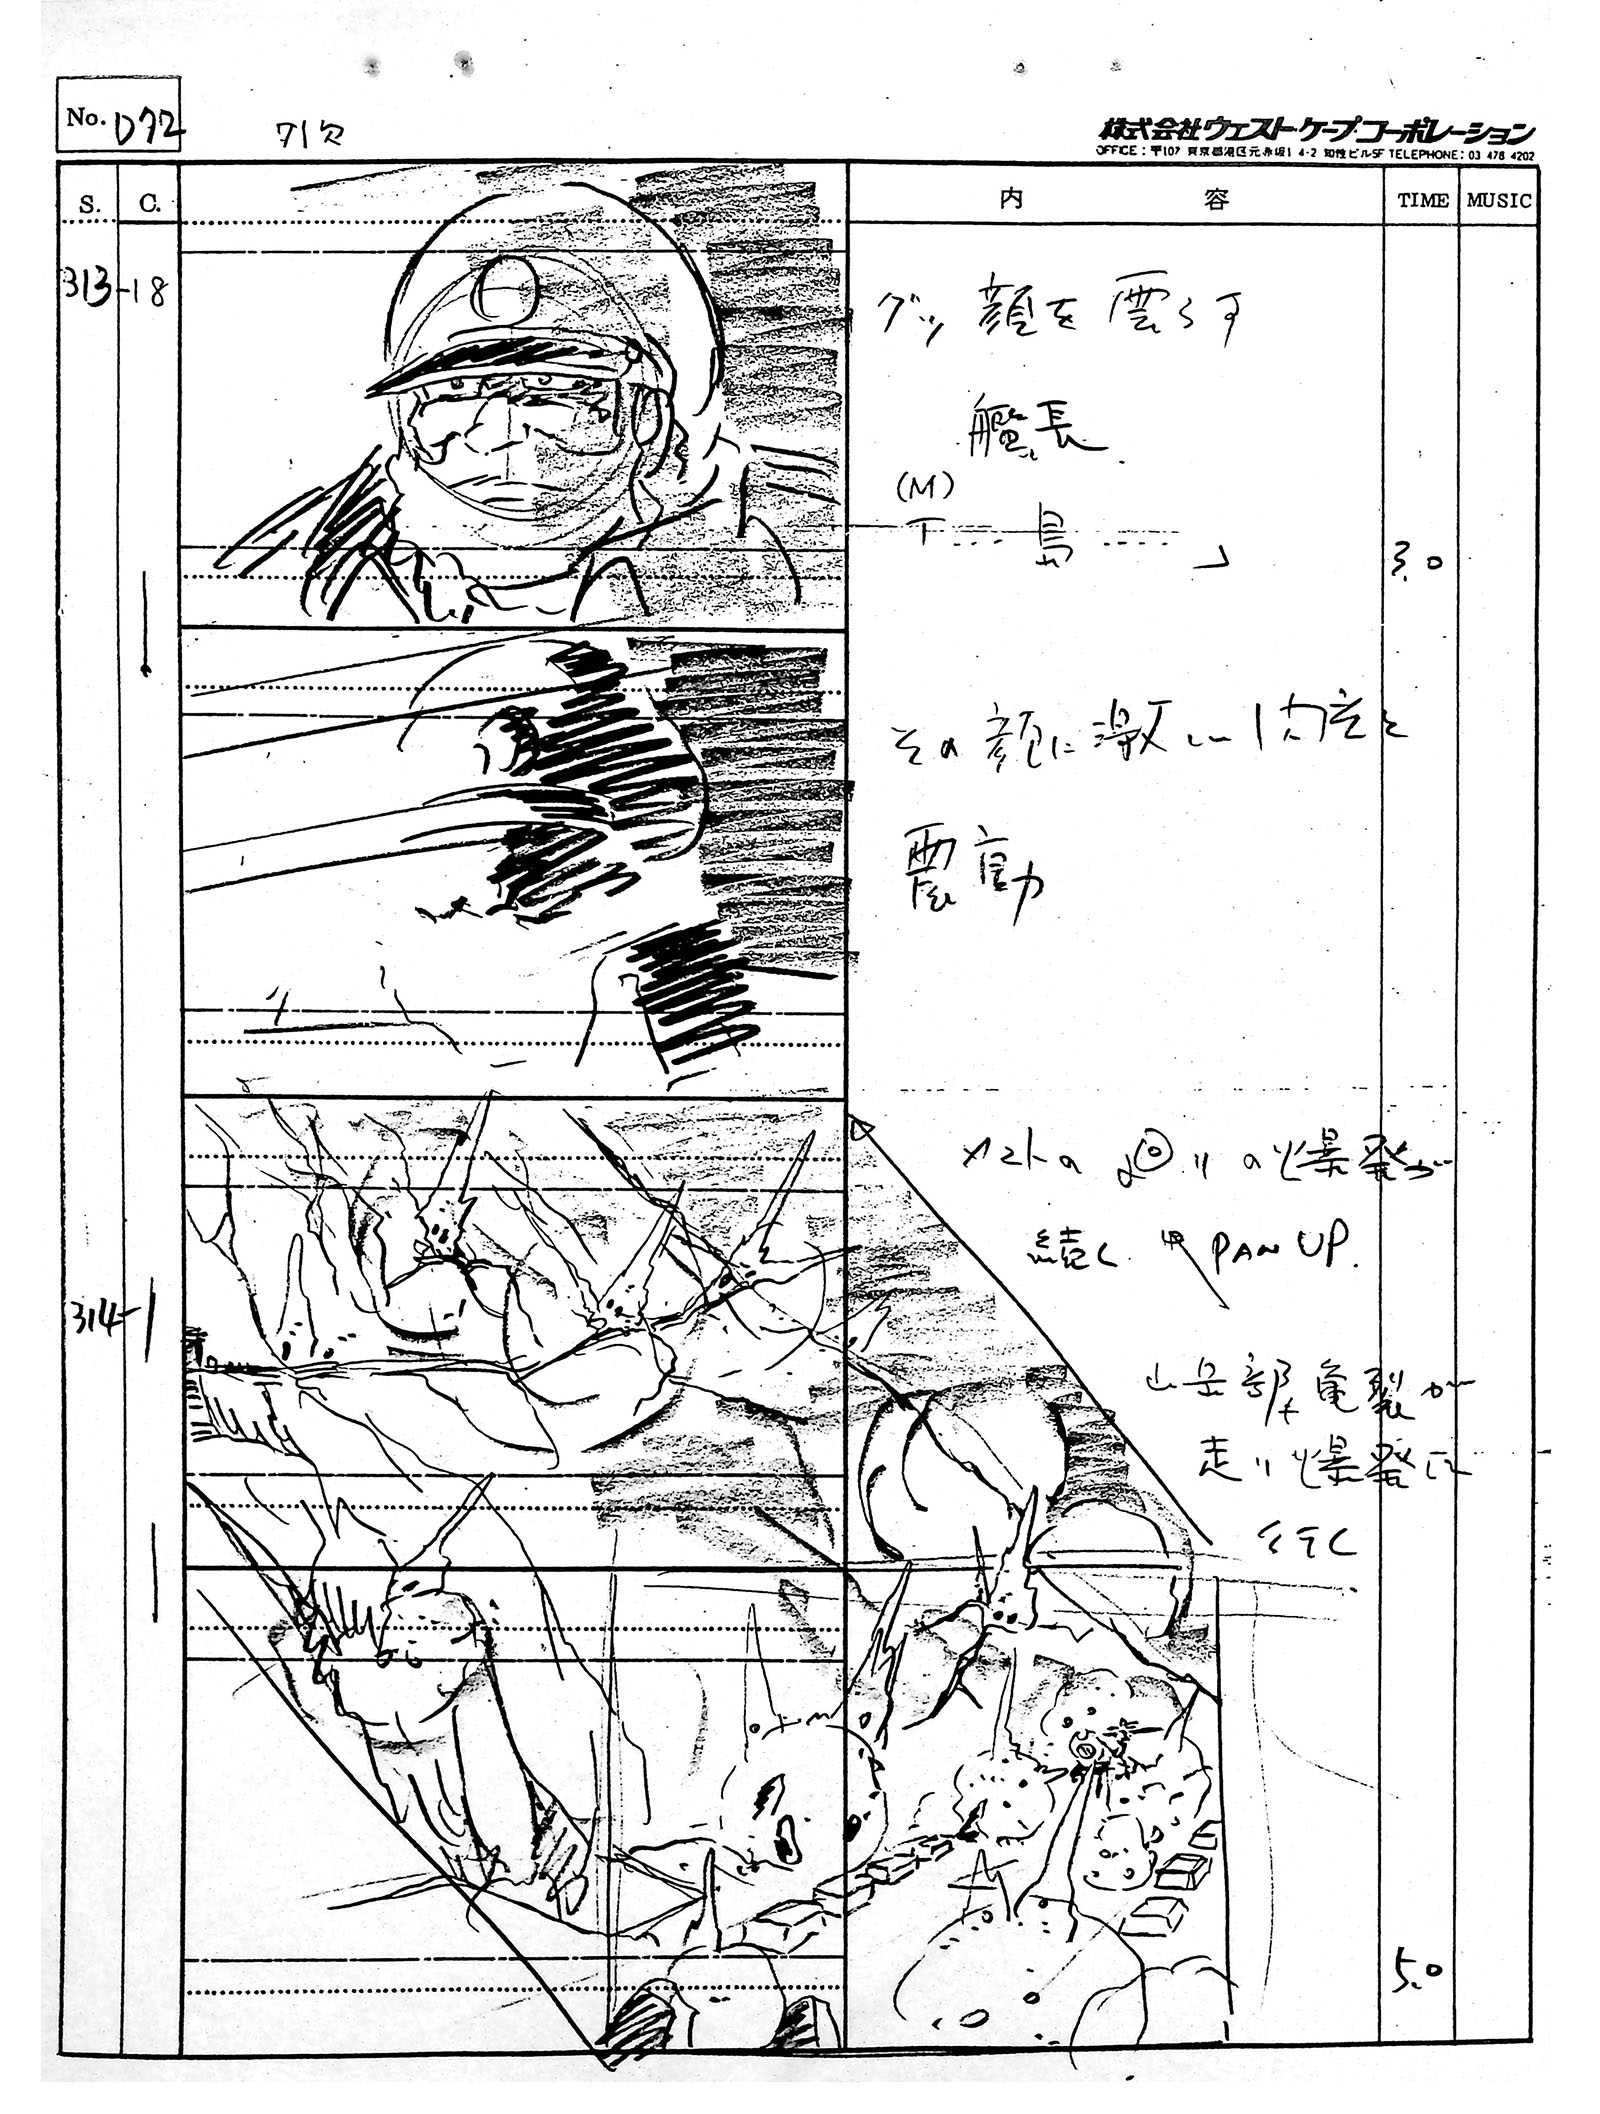 No. D72
71欠
株式会社ウェスト・ケープ・コーポレーション
OFFICE：〒107 東京都港区元赤坂1 4-2 TELEPHONE：03 478 4202
S. C. 内容 TIME MUSIC
313-18
グッ 顔を震らす
艦長
(M)
「……島……」
3.0
その顔に激しい
震動
314-1
の爆発が
続く PAN UP.
山岳部 亀裂が
走り爆発は
続く
5.0